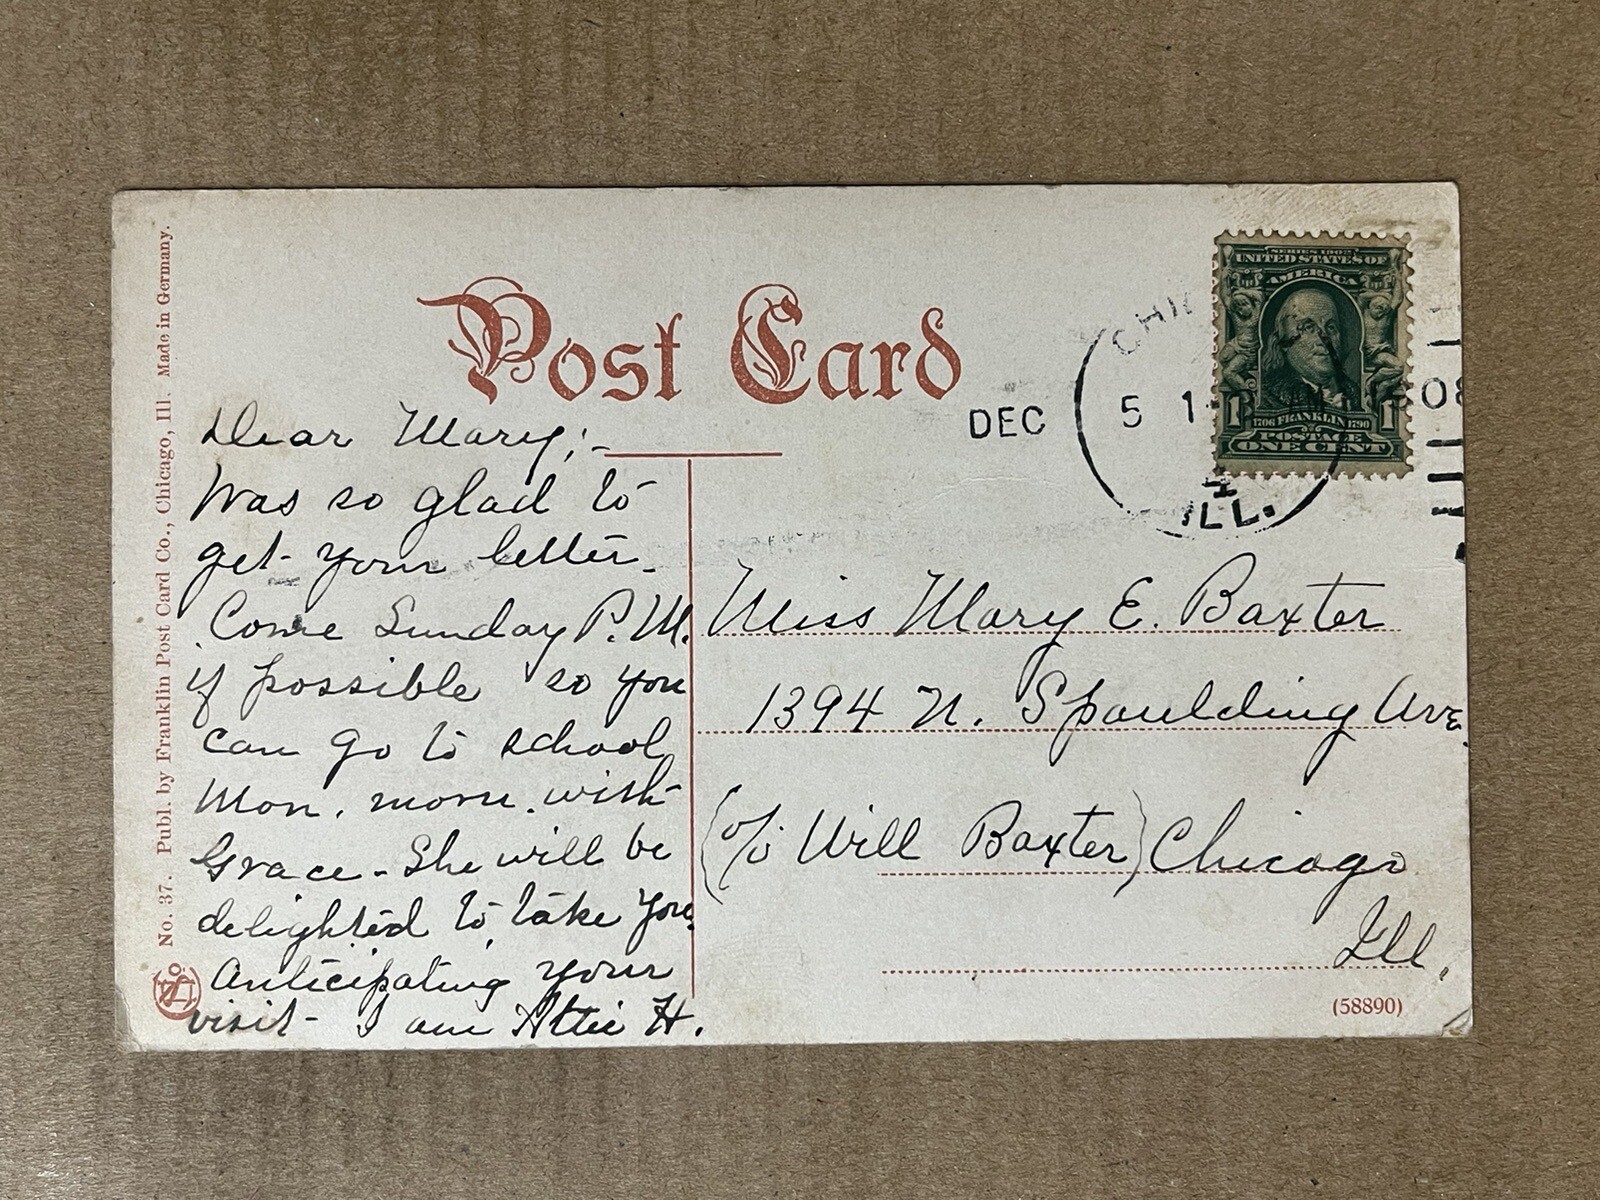 No. 37. Publ. by Franklin Post Card Co., Chicago, Ill. Made in Germany.
Post Card
Dear Mary;-
Was so glad to
get your letter.
Come Sunday P.M.
if possible so you
can go to school
Mon. morn. with
Grace - She will be
delighted to take you.
Anticipating your
visit - I am Attie H.
DEC 5 1
ILL.
SERIES 1902
UNITED STATES OF
AMERICA
1 1706 FRANKLIN 1790 1
POSTAGE
ONE CENT
Miss Mary E. Baxter
1394 N. Spaulding Ave.
(c/o Will Baxter) Chicago
Ill.
(58890)